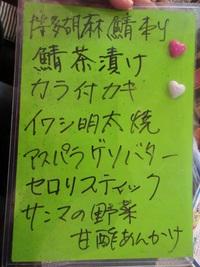 博多胡麻鯖有り
鯖茶漬け
カラ付カキ
イワシ明太焼
アスパラゲソバター
セロリスティック
サンマの野菜
甘酢あんかけ